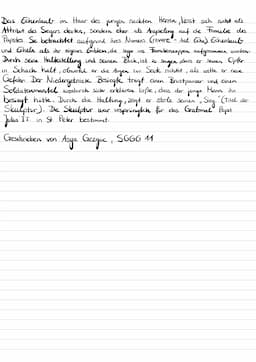 Das Eichenlaub im Haar des jungen nackten Mannes, lässt sich nicht als
Attribut des Siegers deuten, sondern eher als Anspielung auf die Familie des
Papstes. Sie betrachtet aufgrund ihres Namens (rovere = lat. Eiche) Eichenlaub
und Eicheln als ihr eigenes Emblem, die sogar ins Familienwappen aufgenommen wurden.
Durch seine Haltestellung und seinen Blick, ist zu sagen, dass er seinen Opfer
in Schach hält, obwohl er die Augen ins Seite richtet, als sehe er neue
Gefahr. Der Niedergedrückte Besiegte trägt einen Brustpanzer und einen
Soldatenmantel, wodurch sich erklären ließe, dass der junge Mann ihn
besiegt hätte. Durch die Haltung, zeigt er stolz seinen „Sieg" (Titel der
Skulptur). Die Skulptur war ursprünglich für das Grabmal Papst
Julius II. in St. Peter bestimmt.
Geschrieben von Asya Gezgin, SGGG 11